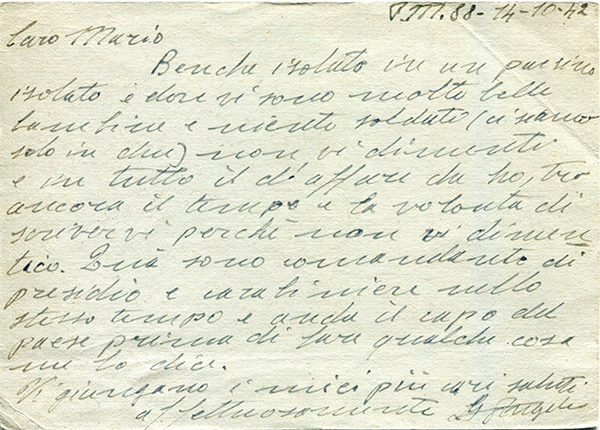 P.M. 88 - 14-10-42
Caro Mario
Benche isolato in un paesino
isolato e dove vi sono molte belle
bambine e niente soldati (ci siamo
solo in due) non vi dimenti
e in tutto il da affare da ho, tro
ancora il tempo e la volonta di
scrivervi perchè non vi dimen
tico. Quà sono comandante di
presidio e carabiniere nello
stesso tempo e anche il capo del
paese prima di fare qualche cosa
me lo dice.
Vi giungano i miei più cari saluti
affettuosamente